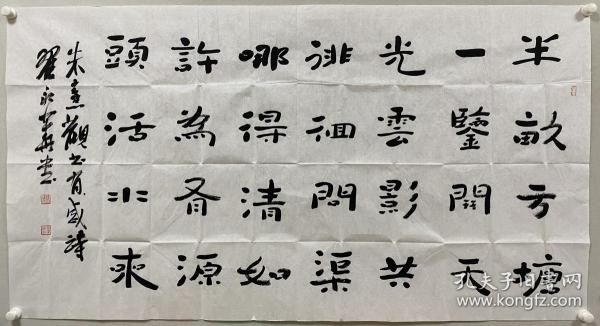 半畝方塘
一鑒開天
光雲影共
徘徊問渠
哪得清如
許為有源
頭活水來
朱熹觀书有感詩
翟永華书
孔夫子旧书网
www.kongfz.com